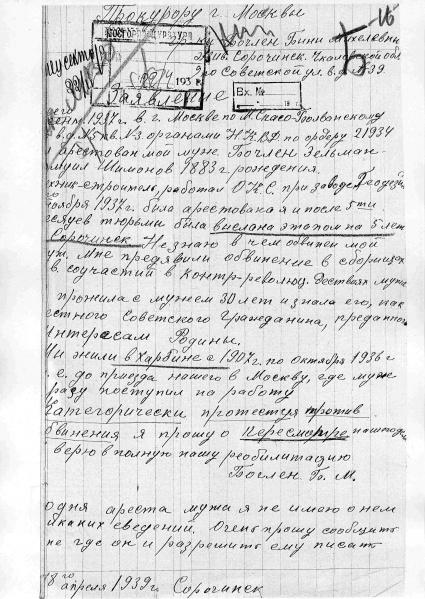 Прокурору г. Москвы
Б-16
гр-ки Боглен Бини Михелевны
Жив. Сорочинск. Чкаловской обл
по Советской ул. в д. №39
193
Заявление
Вх. №
1937г. в г. Москве по М. Спасо-Болванскому
в д. №5 кв. №3. органами Н.К.В.Д. по ордеру 21934
л арестован мой муж. Боглен Зельман-
муил Шимонов 1883 г. рождения.
хник-строитель, работал О.К.С. при заводе Геодези
ноября 1937г. была арестована я и после 5ти
есяцев тюрьмы была выслана этапом на 5 лет
Сорочинск. Не знаю в чем обвинен мой
уж. Мне предявили обвинение в сборищах
в. соучастии в контр-революц. Действиях мужа
прожила с мужем 30 лет и знала его, как
естного Советского Гражданина, преданного
Интересам Родины.
Ми жили в Харбине с 1907г. по октября 1936 г
. е. до приезда нашего в Москву, где муж
разу поступил на работу
Категорически протестуя против
бвинения я прошу о пересмотре
верю в полную нашу реобилитацию
Боглен Б. М.
о дня ареста мужа я не имею о нем
иканих сведений. Очень прошу сообщить
не где он и разрешить ему писать
18го апреля 1939г. Сорочинск